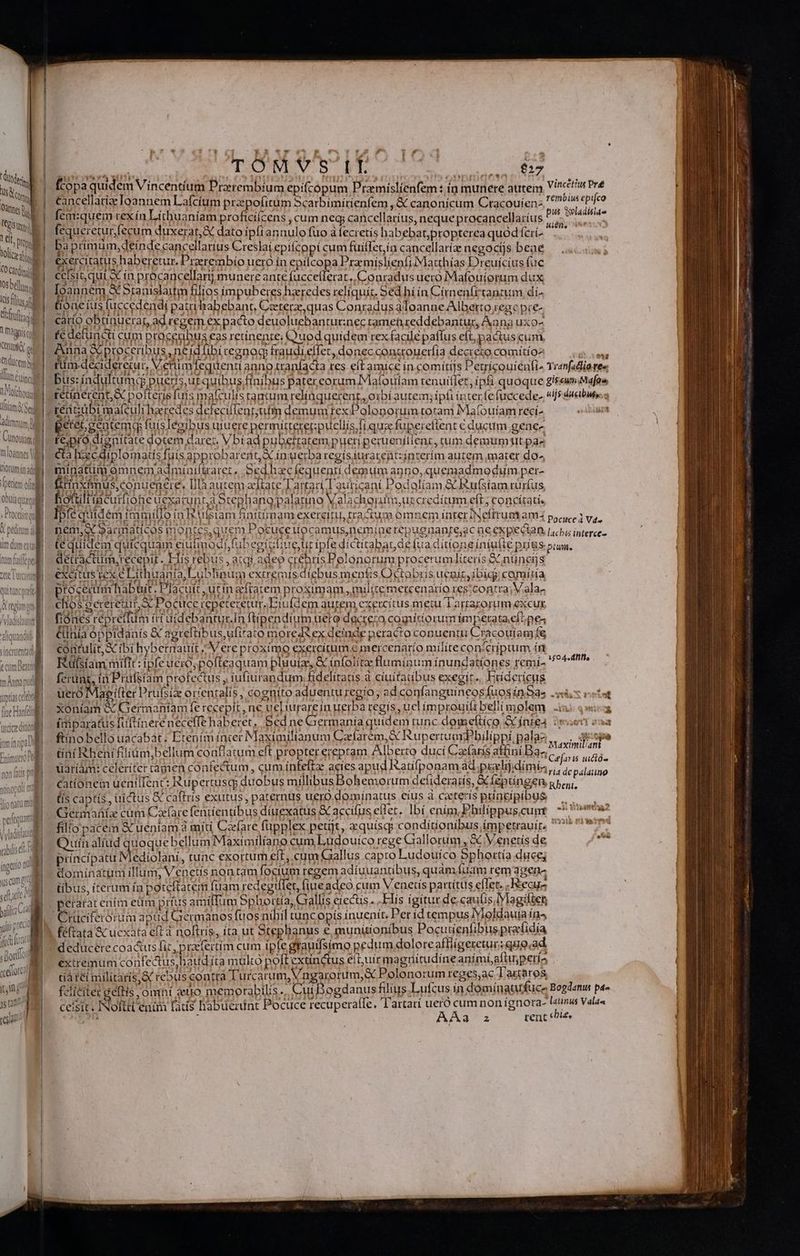 TOMVS II. 827
scopa quidem Vincentium PræremBium episcopum Præmisliensem: in munere autem
cancellariæ Ioannem Lascium præpositum Scarbimiriensem, & canonicum Cracouien-
sem: quem rex in Lithuaniam proficiscens, cum neq; cancellarius, neque procancellarius
sequeretur, secum duxerat, & dato ipsi annulo suo à secretis habebat, propterea quòd scri-
ba primùm, deinde cancellarius Creslai episcopi cum fuisset, in cancellariæ negocijs bene
exercitatus haberetur. PræremBio uerò in episcopa Præmisliensi Matthias Dreuicius suc
cessit, qui & in procancellarij munere ante successerat. Conradus uerò Masouiorum dux
Ioannem & Stanislaum filios impuberes hæredes reliquit. Sed hi in Cirnensi tantùm di-
tione ius succedendi patri habebant. Cætera, quas Conradus à Ioanne Alberto rege pre-
cariò obtinuerat, ad regem ex pacto deuoluebantur: nec tamen reddebantur, Anna uxo-
re defuncti cum proceribus eas retinente. Quod quidem rex facilè passus est, pactus cum
Anna & proceribus, ne id sibi regnoq; fraudi esset, donec controuersia decreto comitiorum
tum decideretur. Verùm sequenti anno transacta res est amicè in comitijs Petricouiensi-
bus: indultumq; pueris, ut quibus finibus pater eorum Masouiam tenuisset, ipsi quoque
retinerent, & posteris suis masculis tantum relinquerent, orbi autem, ipsi inter se succede-
rent: ubi masculi hæredes defecissent, tum demum rex Polonorum totam Masouiam reci-
peret, gentemq; suis legibus uiuere permitteret: puellis, si quæ superessent è ducum gene-
re, pro dignitate dotem daret. Vbi ad pubertatem pueri peruenissent, tum demum ut pa-
cta hæc diplomatis suis approbarent, & in uerba regis iurarent: interim autem mater do-
minatum omnem administraret. Sed hæc sequenti demum anno, quemadmodum per-
strinximus, conuenere. Illa autem æstate Tartari Tauricani Podoliam & Russiam rursus
hostili incursione uexarunt, à Stephano palatino Valachorum, ut creditum est, concitati.
Ipse quidem immisso in Russiam finitimam exercitu, tractum omnem inter Nestrum am-
nem, & Sarmaticos montes, quem Pocuce uocamus, nemine repugnante, ac ne expectan
te quidem quicquam eiusmodi, subegit: siue, ut ipse dictitabat, de sua ditione iniuste prius
detractum, recepit. His rebus, atq; adeo crebris Polonorum procerum literis & nuncijs
excitus rex è Lithuania, Lublinum extremis diebus mensis Octobris uenit, ibiq; comitia
procerum habuit. Placuit, ut in æstatem proximam, milite mercenario res contra Vala-
chos gereretur, & Pocuce repeteretur. Eiusdem autem exercitus metu Tartarorum excur
siones repressum iri uidebantur. In stipendium uero decreto comitiorum imperata est pe-
cunia oppidanis & agrestibus, usitato more. Rex deinde peracto conuentu Cracouiam se
contulit, & ibi hybernauit. Vere proximo exercitum è mercenario milite conscriptum in
Russiam misit: ipse uerò, posteaquam pluuiæ, & insolitæ fluminum inundationes remi-
serunt, in Prussiam profectus, iusiurandum fidelitatis à ciuitatibus exegit. Fridericus
uerò Magister Prussiæ orientalis, cognito aduentu regio, ad consanguineos suos in Sa-
xoniam & Germaniam se recepit, ne uel iurare in uerba regis, uel improuisi belli molem
imparatus sustinere necesse haberet. Sed ne Germania quidem tunc domestico & inte-
stino bello uacabat. Etenim inter Maximilianum Cæsarem, & Rupertum Philippi pala-
tini Rheni filium, bellum conflatum est propter ereptam Alberto duci Cæsaris affini Ba-
uariam: celeriter tamen confectum, cum infestæ acies apud Ratisponam ad prælij dimi-
cationem uenissent: Rupertusq; duobus millibus Bohemorum desideratis, & septingen-
tis captis, uictus & castris exutus, paternus uerò dominatus eius à cæteris principibus
Germaniæ cum Cæsare sentientibus diuexatus & accisus esset. Ibi enim Philippus cum
filio pacem & ueniam à miti Cæsare supplex petijt, æquisq; conditionibus impetrauit.
Quin aliud quoque bellum Maximiliano cum Ludouico rege Gallorum, & Venetis de
principatu Mediolani, tunc exortum est, cum Gallus capto Ludouico Sphortia duce,
dominatum illum, Venetis non tam socium regem adiuuantibus, quàm suam rem agen-
tibus, iterum in potestatem suam redegisset, siue adeo cum Venetis partitus esset. Recu-
perarat enim eum prius amissum Sphortia, Gallis eiectis. His igitur de causis Magister
Cruciferorum apud Germanos suos nihil tunc opis inuenit. Per id tempus Moldauia in-
festata & uexata est à nostris, ita ut Stephanus è munitionibus Pocutiensibus præsidia
deducere coactus sit, præsertim cum ipse grauissimo pedum dolore affligeretur: quo ad
extremum confectus, haud ita multò post extinctus est, uir magnitudine animi, astu, peri-
tia rei militaris, & rebus contra Turcarum, Vngarorum, & Polonorum reges, ac Tartaros
feliciter gestis, omni æuo memorabilis. Cui Bogdanus filius Luscus in dominatu suc-
cessit. Nostri enim satis habuerunt Pocuce recuperasse. Tartari uerò cum non ignora-
AAa 2 rent
Vincētius Præ
rembius episco
pus Vladisla-
uien.
Transactio re-
gis cum Masoa
uijs ducibus.
Pocuce à Va-
lachis interce-
ptum.
1504.
Maximiliani
Cæsaris uictoria
de palatino
Rheni.
Bogdanus pa-
latinus Vala-
chiæ.